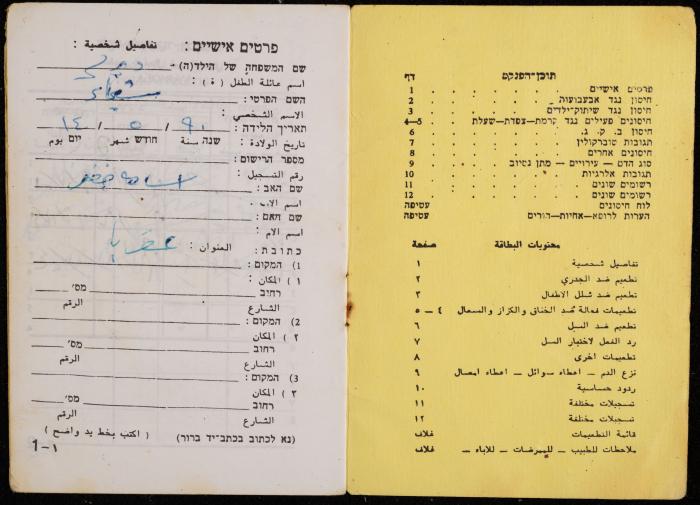 פרטים אישיים : تفاصيل شخصية :
שם המשפחה של הילד(ה)
اسم عائلة الطفل ( ة ) :
השם הפרטי :
الاسم الشخصي :
תאריך הלידה : 14 / 5 / 90
تاريخ الولادة : שנה سنة חודש شهر יום يوم
מספר הרישום :
رقم التسجيل :
שם האב :
اسم الاب :
שם האם :
اسم الام :
כתובת : العنوان :
1) המקום :
١ ) المكان :
רחוב מס׳
الشارع الرقم
2) המקום :
٢ ) المكان
רחוב מס׳
الشارع الرقم
3) המקום :
٣ ) المكان
רחוב מס׳
الشارع الرقم
(נא לכתוב בכתב־יד ברור) ( اكتب بخط يد واضح )
1–١
תוכן־הפנקס דף
פרטים אישיים 1
חיסון נגד אבעבועות 2
חיסון נגד שיתוק־ילדים 3
חיסונים פעילים נגד קרמת—צפדת—שעלת 4–5
חיסון ב. ק. ג. 6
תגובות טוברקולין 7
חיסונים אחרים 8
סוג הדם — עירויים — מתן נסיוב 9
תגובות אלרגיות 10
רשומים שונים 11
רשומים שונים 12
לוח חיסונים עטיפה
הערות לרופא—אחיות—הורים עטיפה
محتويات البطاقة صفحة
تفاصيل شخصية ١
تطعيم ضد الجدري ٢
تطعيم ضد شلل الاطفال ٣
تطعيمات فعالة ضد الخناق والكزاز والسعال ٤ – ٥
تطعيم ضد السل ٦
رد الفعل لاختبار السل ٧
تطعيمات اخرى ٨
نزع الدم – اعطاء سوائل – اعطاء امصال ٩
ردود حساسية ١٠
تسجيلات مختلفة ١١
تسجيلات مختلفة ١٢
قائمة التطعيمات غلاف
ملاحظات للطبيب – للممرضات – للاباء – غلاف